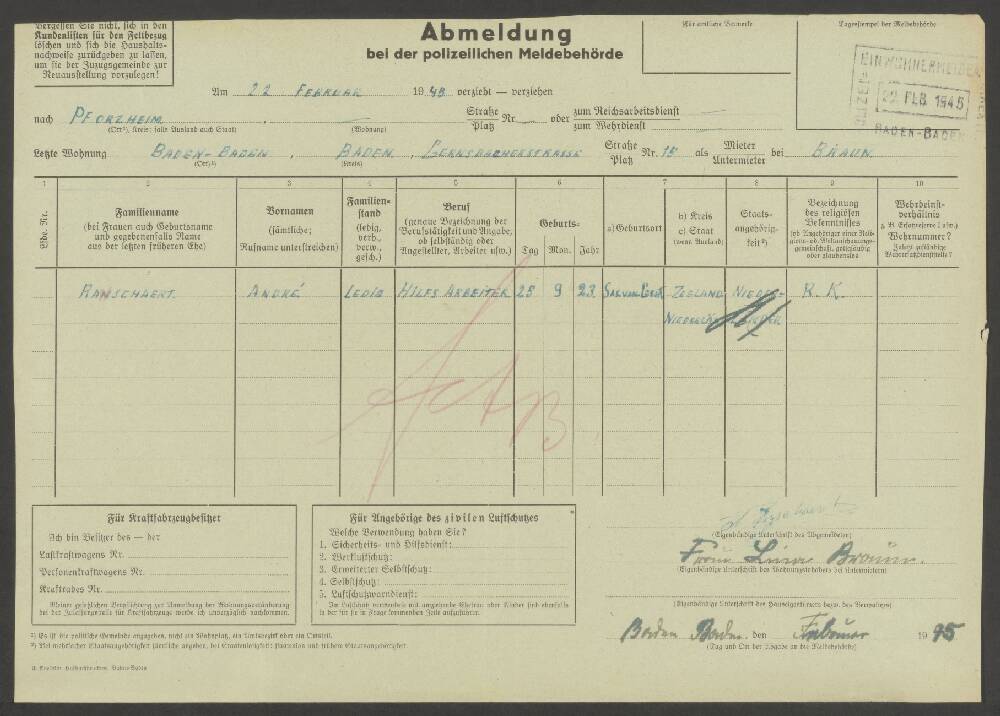 Vergessen Sie nicht, sich in den
Kundenlisten für den Fettbezug
löschen und sich die Haushalts-
nachweise zurückgeben zu lassen,
um sie der Zuzugsgemeinde zur
Neuausstellung vorzulegen!
Abmeldung
bei der polizeilichen Meldebehörde
Für amtliche Vermerke
Tagesstempel der Meldebehörde
EINWOHNERMELDE
22. FEB. 1945
BADEN-BADEN
Am 22 FEBRUAR 1945 verzieht — verziehen
nach PFORZHEIM
(Ort¹), Kreis; falls Ausland auch Staat) (Wohnung)
Straße Platz Nr. oder zum Reichsarbeitsdienst zum Wehrdienst
Letzte Wohnung BADEN-BADEN, BADEN, GERNSBACHERSTRASSE Straße Platz Nr. 15 als Mieter Untermieter bei BRAUN
(Ort¹) (Kreis)
1 2 3 4 5 6 7 8 9 10
Lfde. Nr.
Familienname
(bei Frauen auch Geburtsname
und gegebenenfalls Name
aus der letzten früheren Ehe)
Vornamen
(sämtliche;
Rufname unterstreichen)
Familien-
stand
(ledig,
verh.,
verw.,
gesch.)
Beruf
(genaue Bezeichnung der
Berufstätigkeit und Angabe,
ob selbständig oder
Angestellter, Arbeiter usw.)
Geburts-
Tag Mon. Jahr
a) Geburtsort
b) Kreis
c) Staat
(wenn Ausland)
Staats-
angehörig-
keit²)
Bezeichnung
des religiösen
Bekenntnisses
(ob Angehöriger einer Reli-
gions- od. Weltanschauungs-
gemeinschaft, gottgläubig
oder glaubenslos)
Wehrdienst-
verhältnis
Wehrnummer?
RAMSCHAERT ANDRÉ LEDIG HILFSARBEITER 25 9 23 ZEELAND NIEDER- R. K.
Für Kraftfahrzeugbesitzer
Ich bin Besitzer des — der
Lastkraftwagens Nr.
Personenkraftwagens Nr.
Kraftrades Nr.
Meiner gesetzlichen Verpflichtung zur Anmeldung der Wohnungsveränderung
bei der Zulassungsstelle für Kraftfahrzeuge werde ich unverzüglich nachkommen.
Für Angehörige des zivilen Luftschutzes
Welche Verwendung haben Sie?
1. Sicherheits- und Hilfsdienst:
2. Werkluftschutz:
3. Erweiterter Selbstschutz:
4. Selbstschutz:
5. Luftschutzwarndienst:
(Eigenhändige Unterschrift des Abgemeldeten)
Frau Luise Braun.
(Eigenhändige Unterschrift des Wohnungsinhabers bei Untermietern)
(Eigenhändige Unterschrift des Hauseigentümers bezw. des Verwalters)
Baden Baden, den Februar 1945
(Tag und Ort der Abgabe an die Meldebehörde)
¹) Es ist die politische Gemeinde anzugeben, nicht ein Wohnplatz, ein Amtsbezirk oder ein Ortsteil.
²) Bei mehrfacher Staatsangehörigkeit sämtliche angeben, bei Staatenlosigkeit: staatenlos und frühere Staatsangehörigkeit